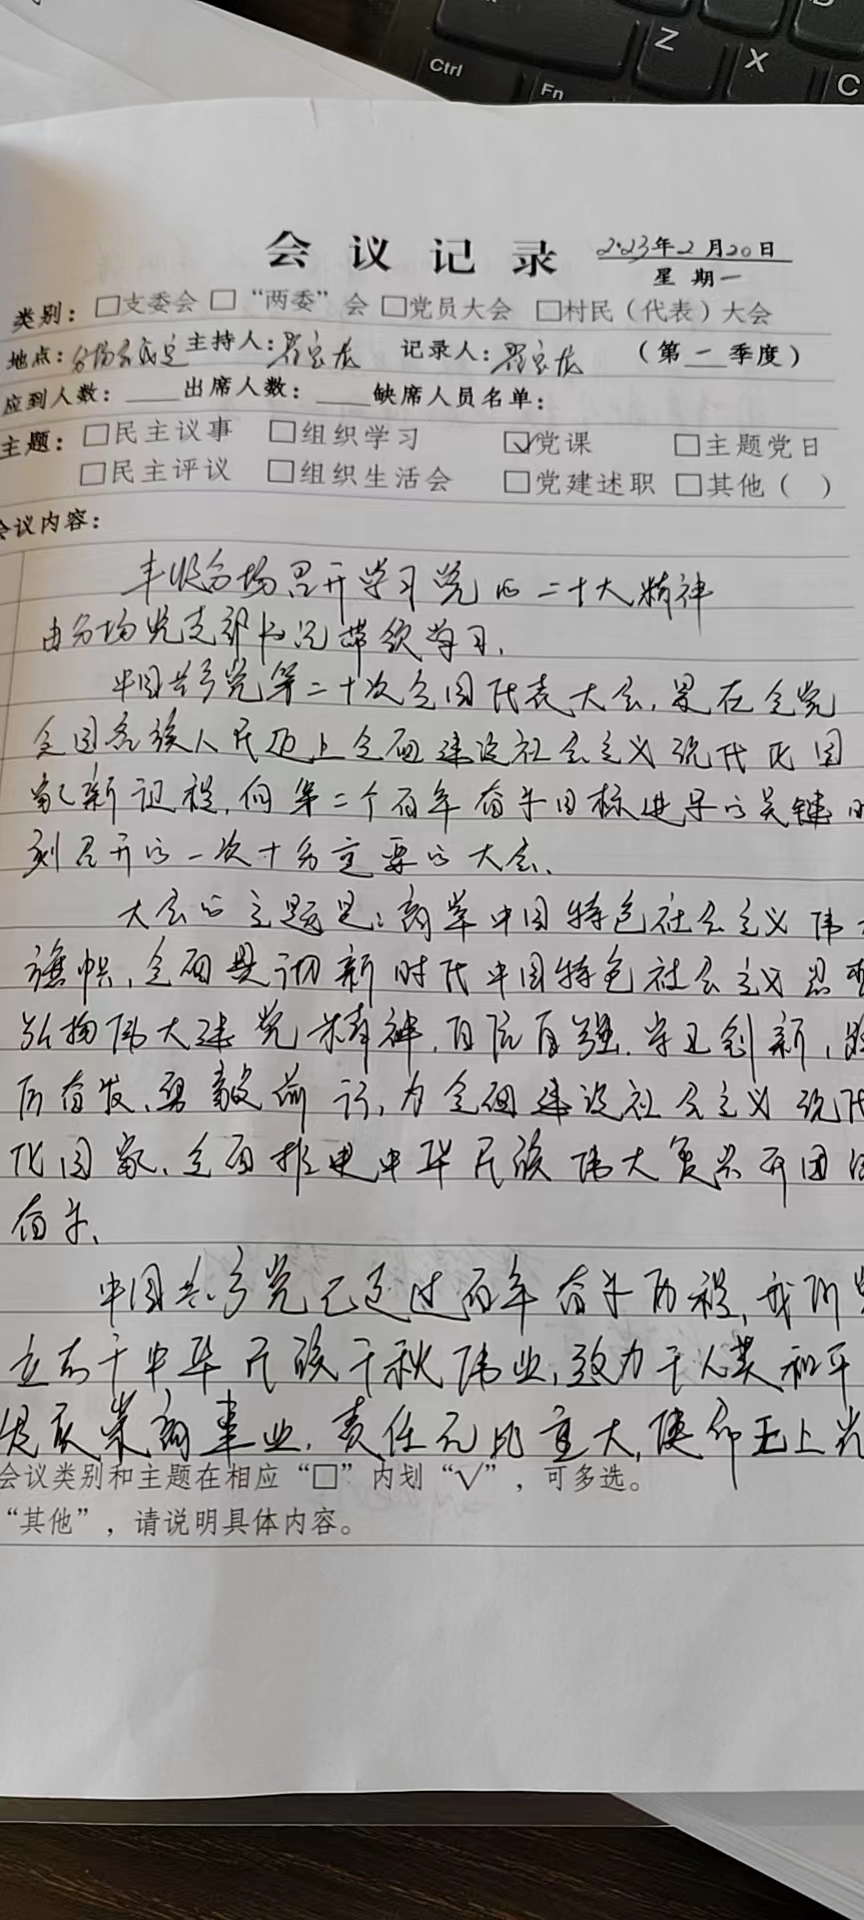 Ctrl
Fn
Z
X
C
会议记录
2023年2月20日
星期一
类别：□支委会 □“两委”会 □党员大会 □村民（代表）大会
地点：分场会议室 主持人： 记录人： （第一季度）
应到人数： 出席人数： 缺席人员名单：
主题：□民主议事 □组织学习 ☑党课 □主题党日
□民主评议 □组织生活会 □党建述职 □其他（ ）
会议内容：
丰收分场召开学习党的二十大精神
由分场党支部书记带领学习.
中国共产党第二十次全国代表大会，是在全党
全国各族人民迈上全面建设社会主义现代化国
家新征程，向第二个百年奋斗目标进军的关键时
刻召开的一次十分重要的大会、
大会的主题是：高举中国特色社会主义伟大
旗帜，全面贯彻新时代中国特色社会主义思想
弘扬伟大建党精神，自信自强、守正创新，踔
厉奋发、勇毅前行，为全面建设社会主义现代
化国家、全面推进中华民族伟大复兴而团结
奋斗、
中国共产党已走过百年奋斗历程，我们党
立志于中华民族千秋伟业，致力于人类和平
发展崇高事业，责任无比重大，使命无上光
会议类别和主题在相应“□”内划“√”，可多选。
“其他”，请说明具体内容。